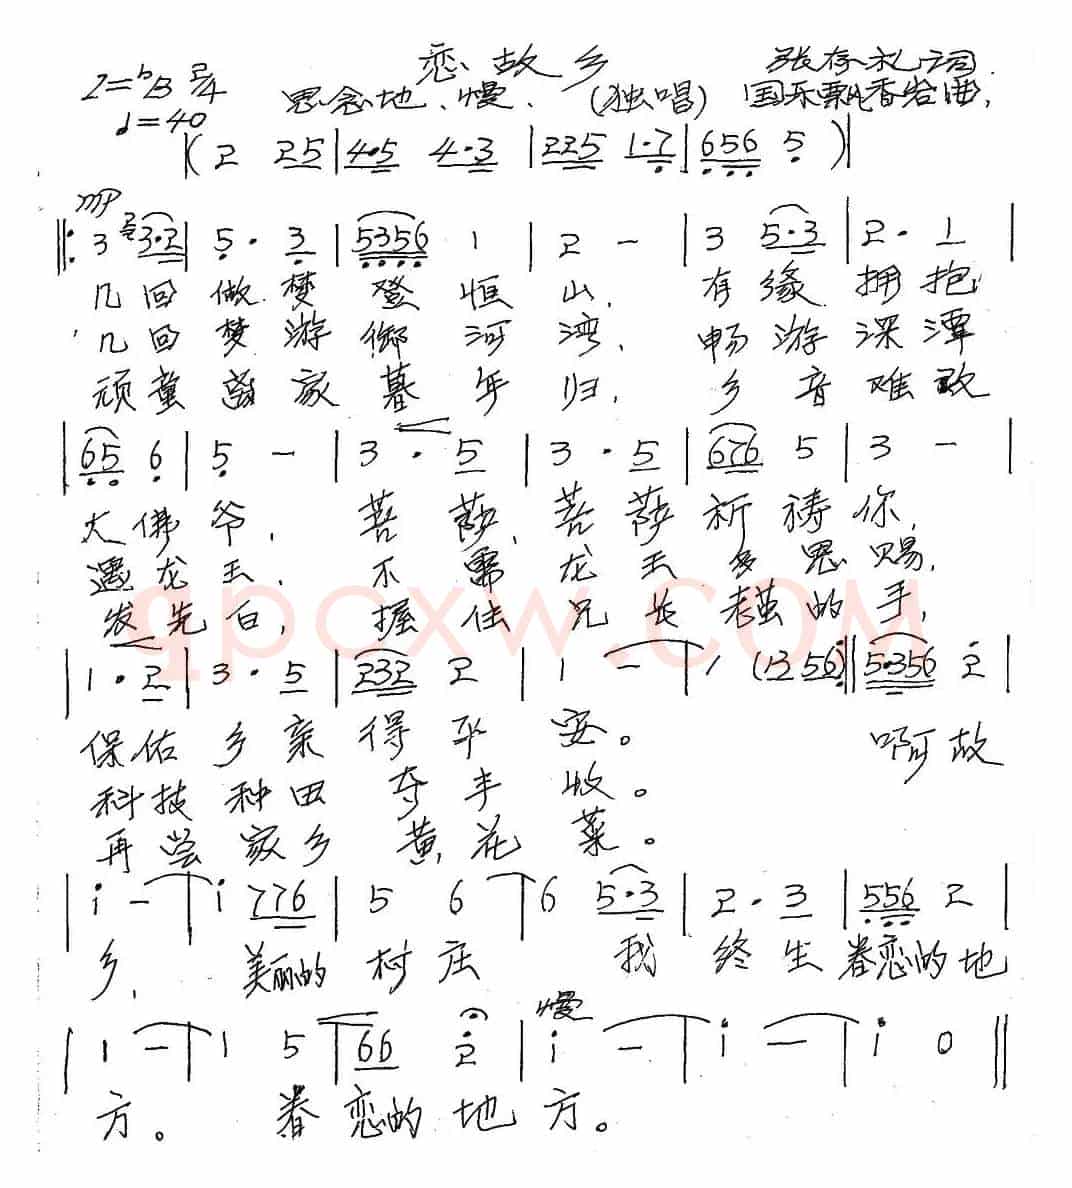 恋故乡
1=♭B 2/4
♩=40
思念地、慢、(独唱)
张存礼 词
国乐飘香 曲
( 2 25 | 4·5 4·3 | 225 1·7 | 656 5 ) |
mp
‖: 3 3·2 | 5· 3 | 5356 1 | 2 - | 3 5·3 | 2· 1 |
几回做梦登恒山,有缘拥抱
几回梦游御河湾,畅游深潭
顽童离家暮年归,乡音难改
| 65 6 | 5 - | 3 · 5 | 3 · 5 | 676 5 | 3 - |
大佛爷,菩萨,菩萨祈祷你,
遇龙王,不需龙王多恩赐,
发先白,握住兄长老茧的手,
| 1 · 2 | 3 · 5 | 232 2 | 1 - | 1 (12 56) :‖ 5·356 2 |
保佑乡亲得平安。啊故
科技种田夺丰收。
再尝家乡黄花菜。
| i - | i 776 | 5 6 | 6 5·3 | 2· 3 | 556 2 |
乡,美丽的村庄我终生眷恋的地
慢
| 1 - | 1 5 | 66 2 | i - | i - | i 0 ‖
方。眷恋的地方。
qpcxw.COM